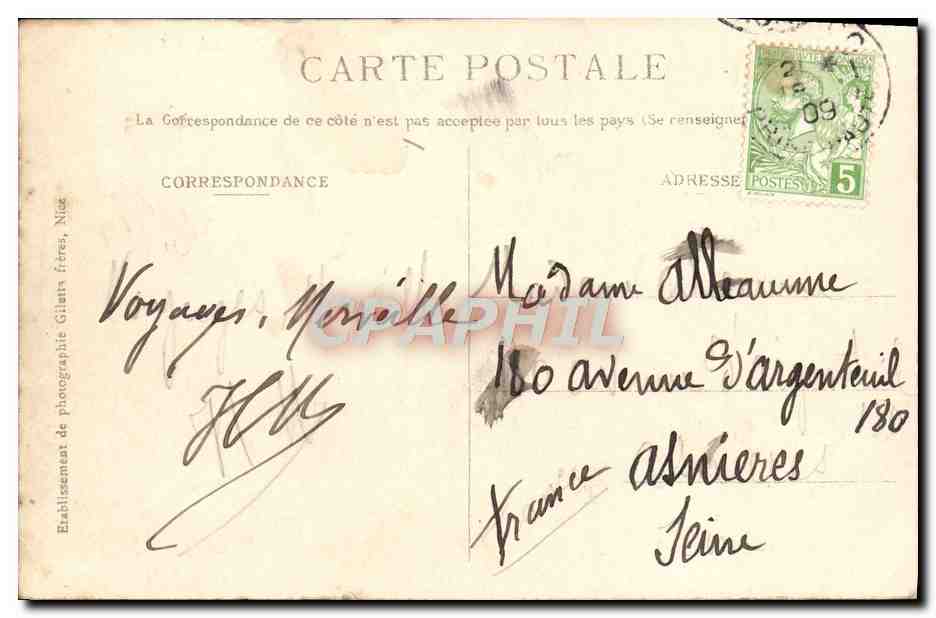 CARTE POSTALE
La Correspondance de ce côté n'est pas acceptée par tous les pays (Se renseigner
CORRESPONDANCE
ADRESSE
POSTES 5
09
Etablissement de photographie Giletta frères, Nice
Voyages, Merveille
Madame Alleaume
180 avenue d'argenteuil
180
asnieres
Seine
France
CPAPHIL